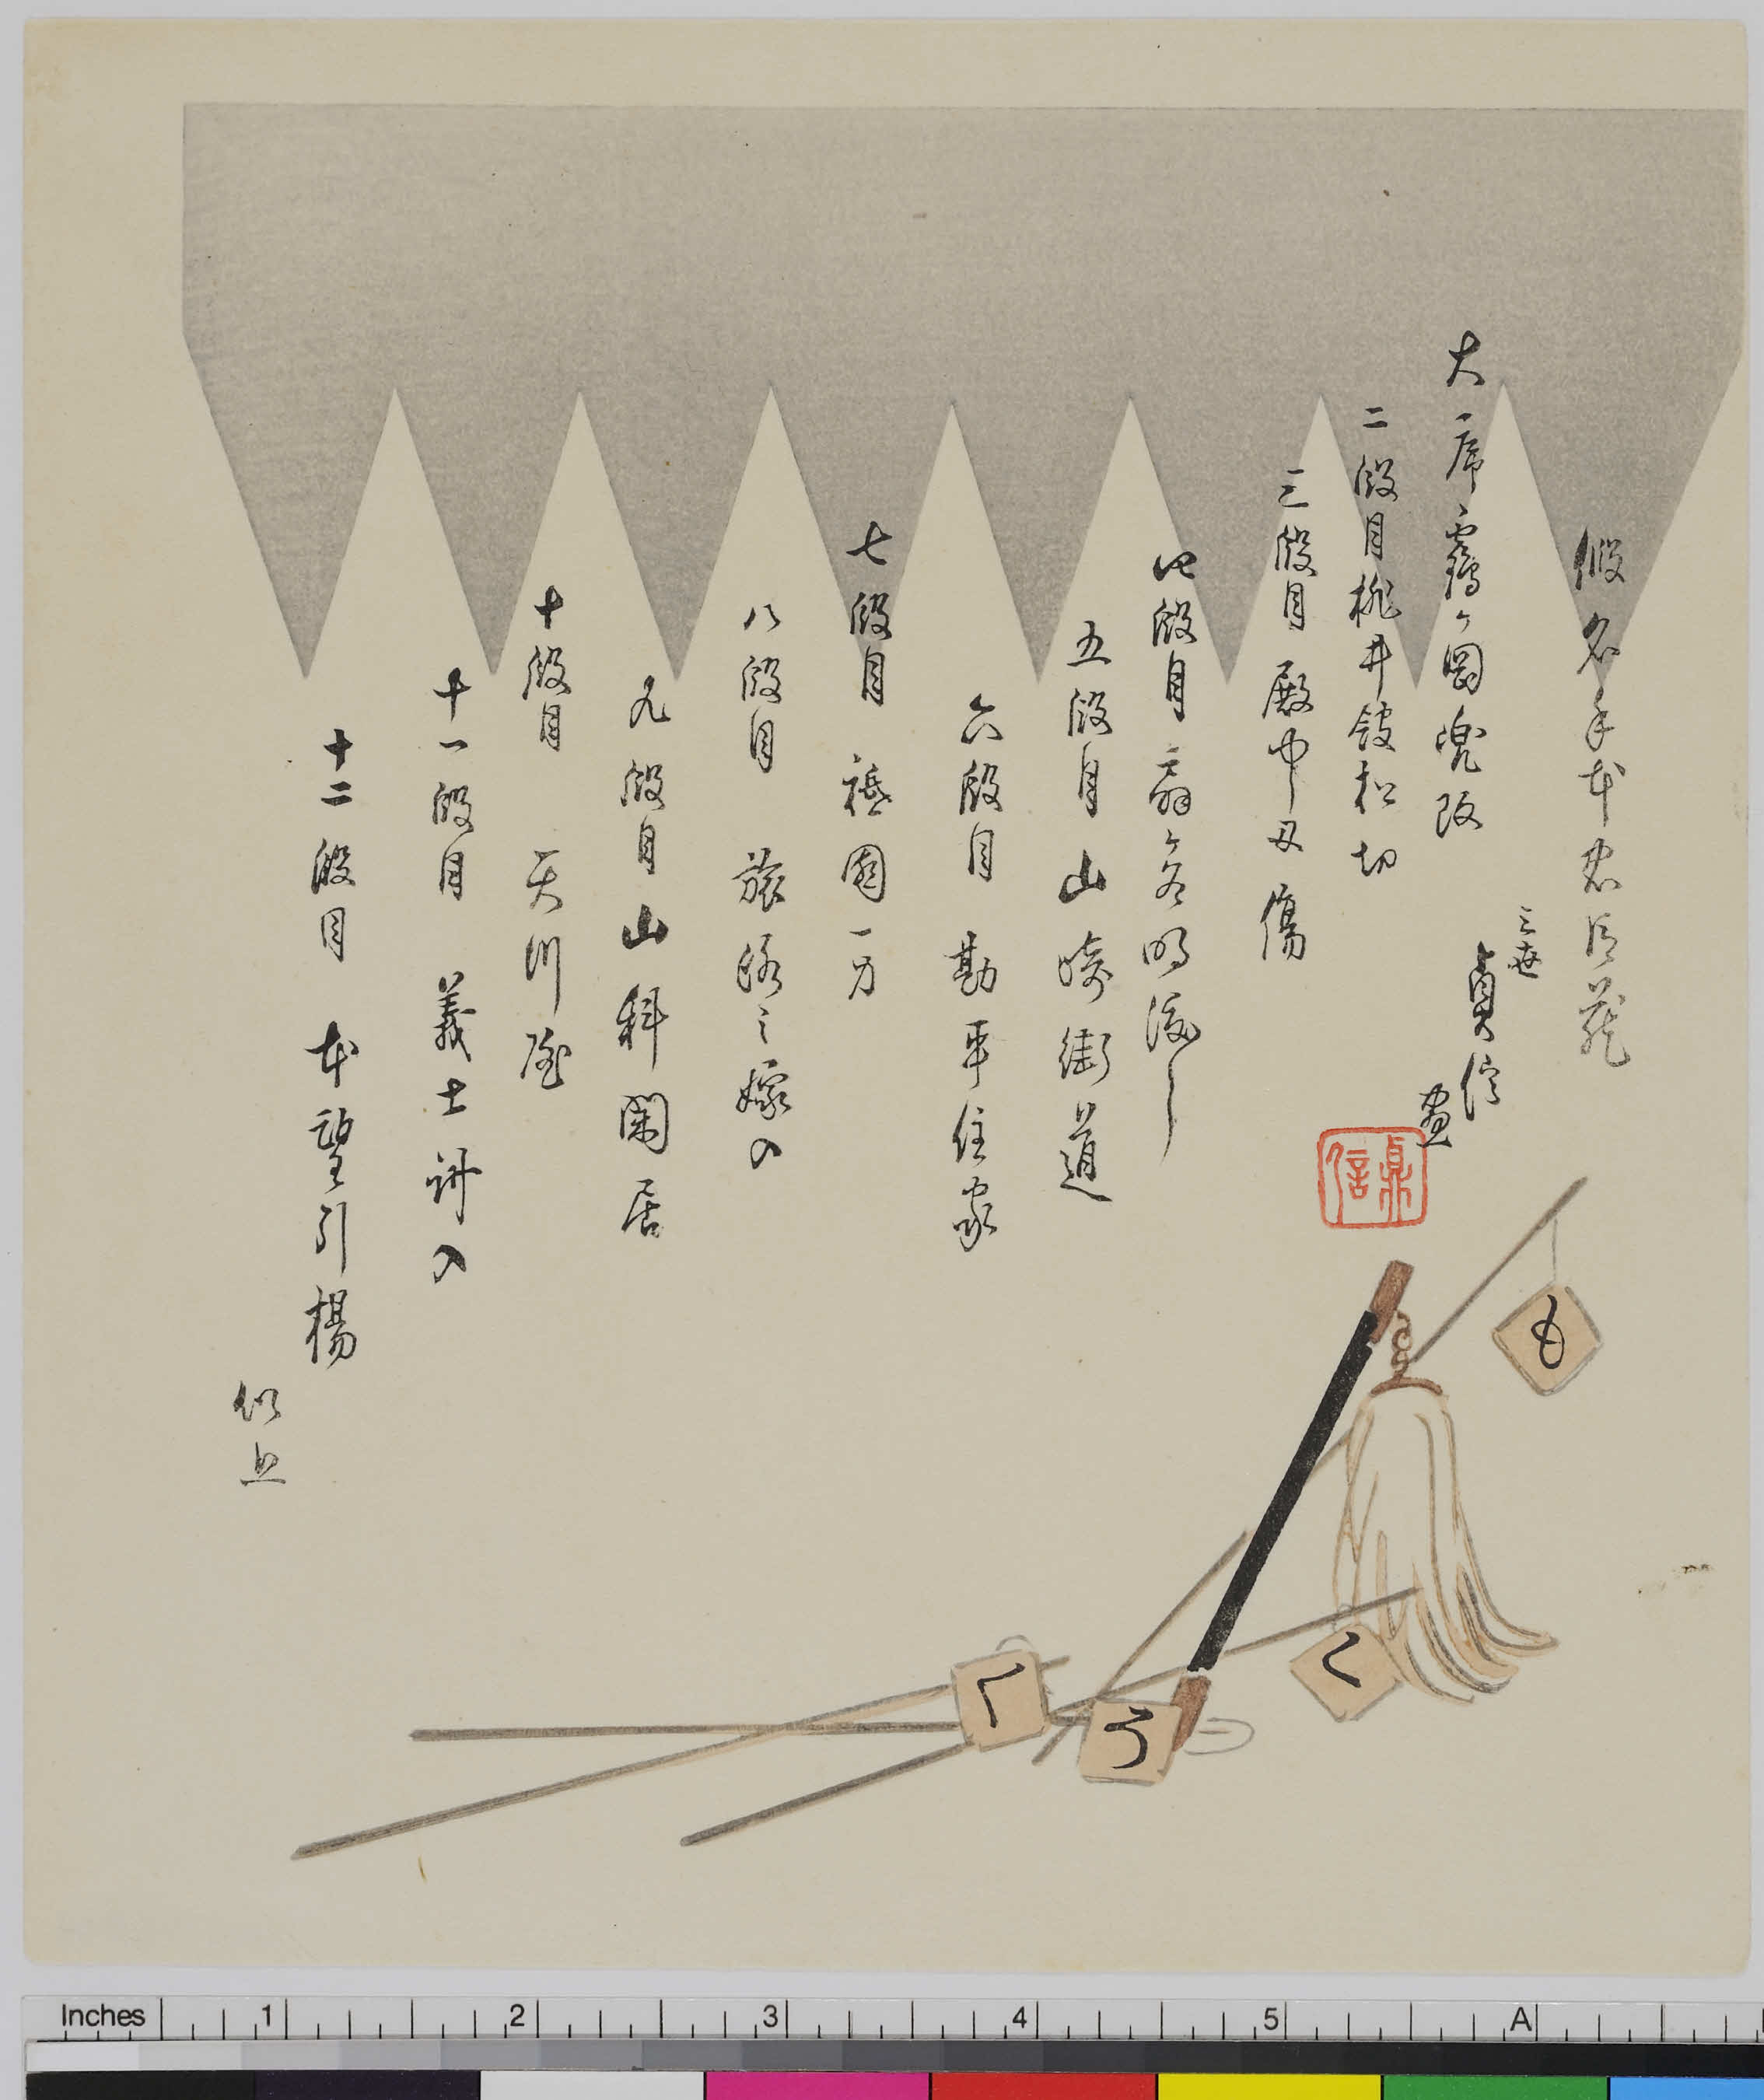 假名手本忠臣蔵
三世
貞信
画
鼎信
大序 霧ヶ岡兜改
二段目 桃井館松切
三段目 殿中刃傷
四段目 扇ヶ谷明渡し
五段目 山崎街道
六段目 勘平住家
七段目 祇園一力
八段目 旅路之嫁入
九段目 山科閑居
十段目 天川屋
十一段目 義士討入
十二段目 本望引揚
以上
も
く
ろ
く
Inches 1 2 3 4 5 A